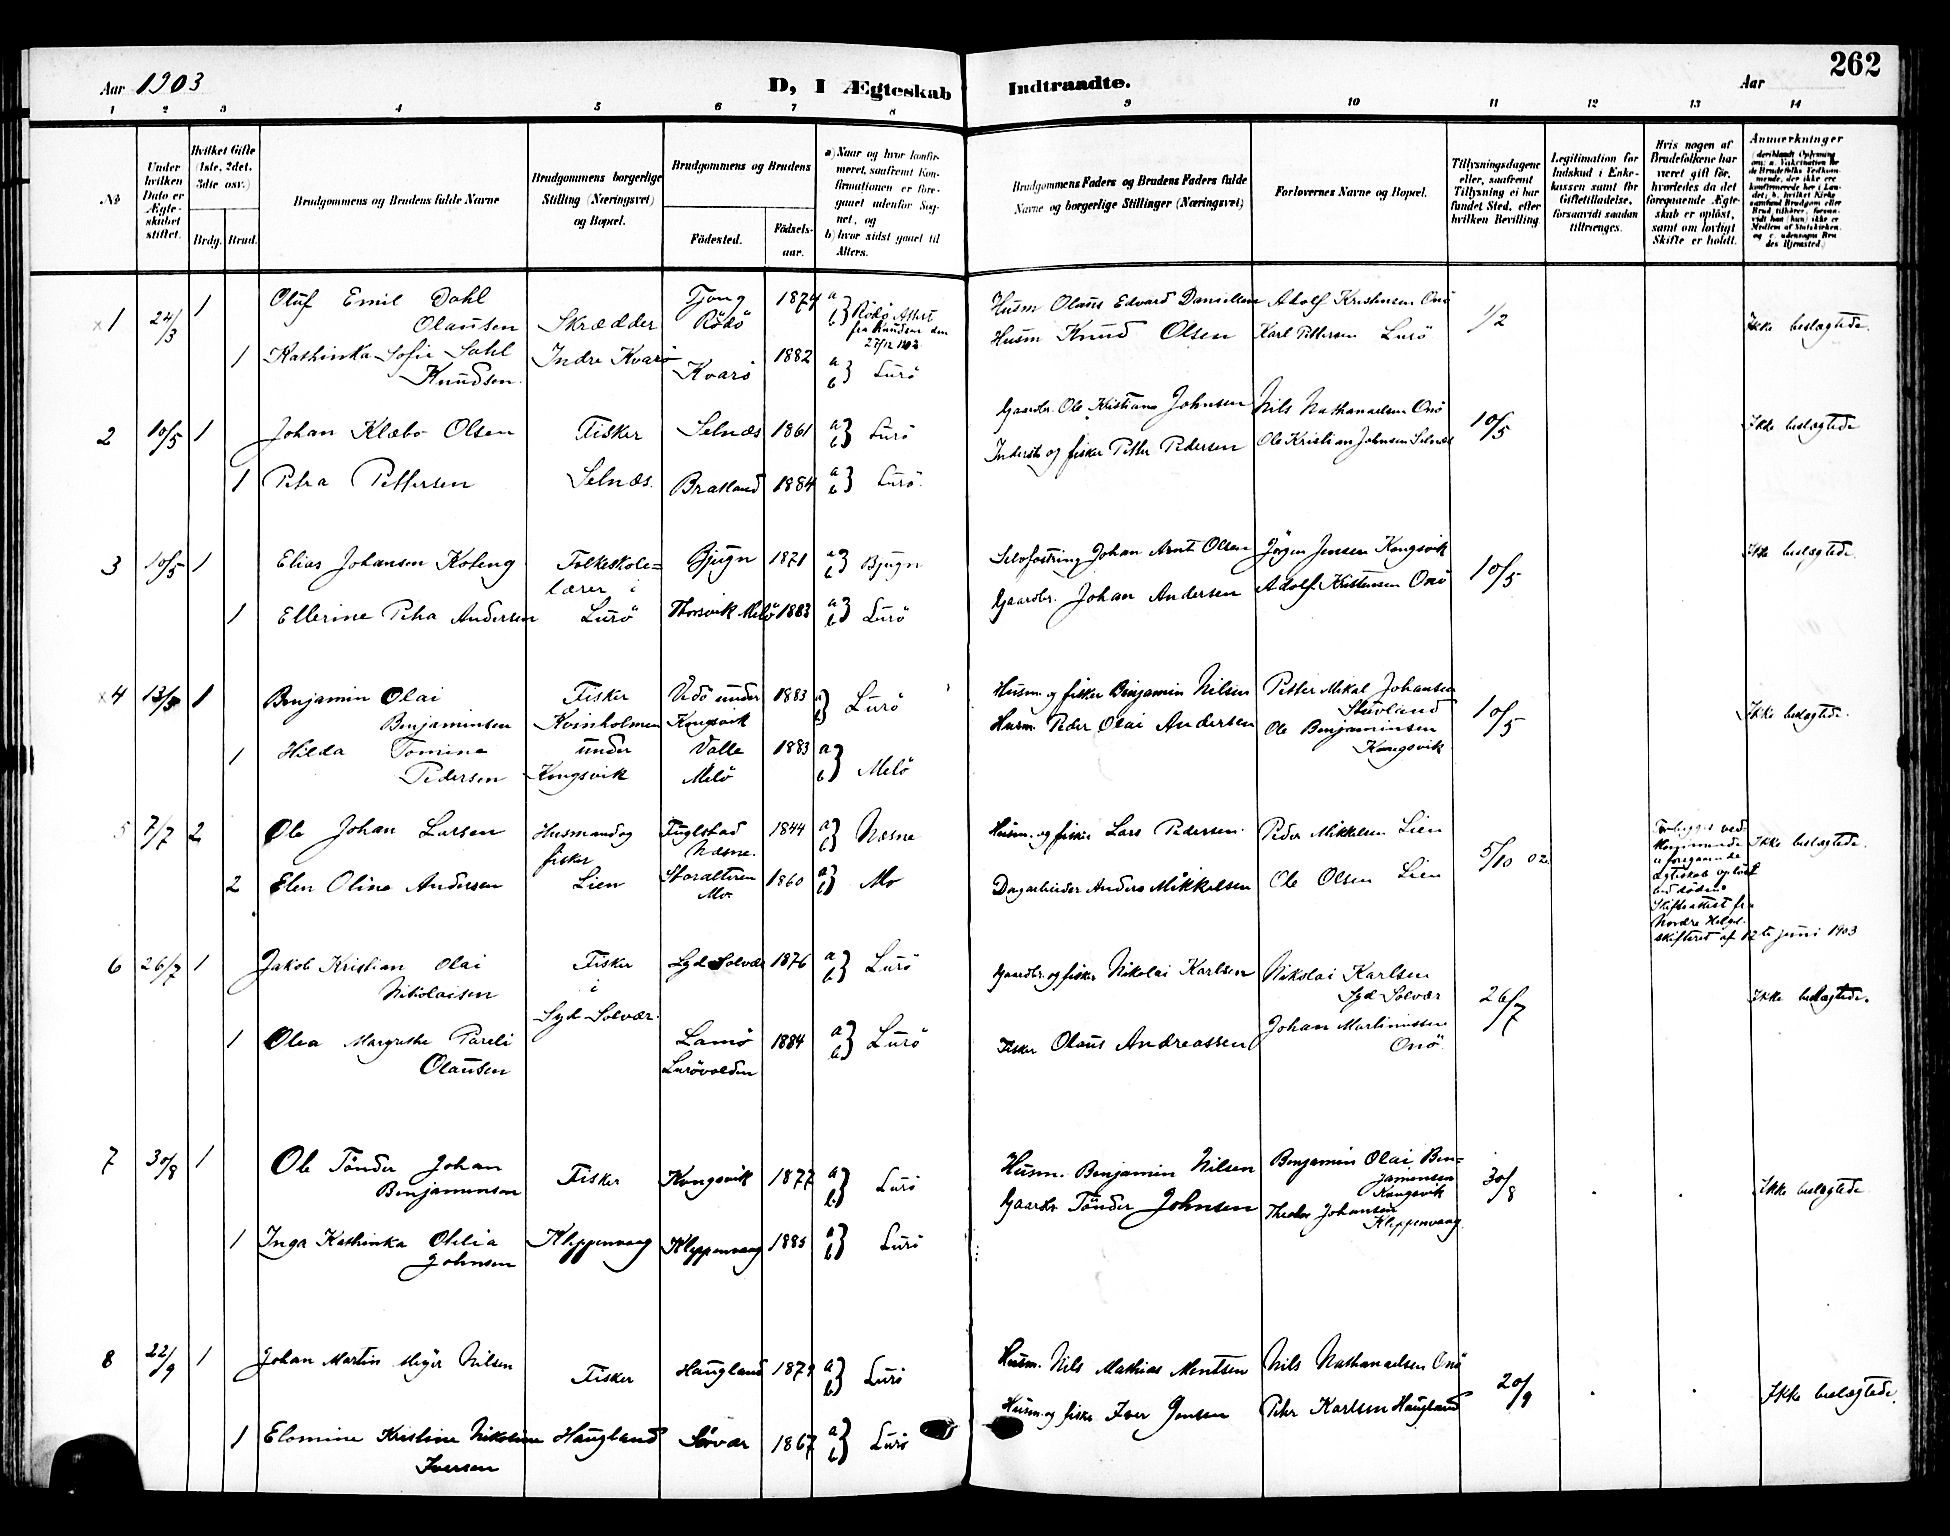 262
Aar 1903
D, I Ægteskab Indtraadte.
Aar
1 2 3 4 5 6 7 8 9 10 11 12 13 14
No
Under hvilken Dato er Ægteskabet stiftet.
Hvilket Gifte (1ste, 2det, 3die osv.)
Brdg. Brud.
Brudgommens og Brudens fulde Navne
Brudgommens borgerlige Stilling (Næringsvei) og Bopæl.
Brudgommens og Brudens
Födested.
Födselsaar.
a) Naar og hvor konfirmeret, saafremt Konfirmationen er foregaaet udenfor Sognet, og
b) hvor sidst gaaet til Alters.
Brudgommens Faders og Brudens Faders fulde Navne og borgerlige Stillinger (Næringsvei)
Forlovernes Navne og Bopæl.
Tillysningsdagene eller, saafremt Tillysning ei har fundet Sted, efter hvilken Bevilling
Legitimation for Indskud i Enkekassen samt for Giftetilladelse, forsaavidt saadan tiltrænges.
Hvis nogen af Brudefolkene har været gift før, hvorledes da det foregaaende Ægteskab er oplöst, samt om lovligt Skifte er holdt.
Anmerkninger
x1 24/3 1 Oluf Emil Dahl Olausen Skrædder Tjong Rödö 1874 a b Rödö Attest fra Randen den 27/12 1902 Husm Olaus Edvard Danielsen Adolf Kristensen Onö 1/2 Ikke beslægtede.
1 Kathinka Sofie Dahl Knudsen. Indre Kvarö Kvarö 1882 a b Lurö Husm Knud Olsen Karl Pettersen Lurö
2 10/5 1 Johan Klæbo Olsen Fisker Selnæs 1861 a b Lurö Gaardbr. Ole Kristians Johnsen Nils Nathanaelsen Onö 10/5 Ikke beslægtede
1 Petra Pettersen Selnæs. Bratland 1884 a b Lurö. Inderst og fisker Petter Pedersen Ole Kristian Johnsen Selnæs
3 10/5 1 Elias Johansen Koteng Folkeskole= lærer i Bjugn 1871 a b Bjugn Selvfostring Johan Arnt Olsen Jörgen Jensen Kongsvik 10/5 Ikke beslægtede.
1 Ellerine Petra Andersen Lurö Thorsvik Melö 1883 a b Lurö Gaardbr. Johan Andersen Adolf Kristensen Onö
x4 13/5 1 Benjamin Olai Benjaminsen Fisker Kornholmen Vedö under Kongsvik 1883 a b Lurö Husm. og fisker Benjamin Nilsen Petter Mikal Johansen Stuvland 10/5 Ikke beslægtede.
1 Hilda Tomine Pedersen under Kongsvik Valle Melö 1883 a b Melö Husm. Peder Olai Andersen Ole Benjaminsen Kongsvik
5 7/7 2 Ole Johan Larsen Husmand og fisker Fuglstad Næsne. 1844 a b Næsne Husm. og fisker Lars Pedersen. Peder Mikkelsen Lien 5/10 02 Ikke beslægtede.
2 Elen Oline Andersen Lien Storalteren Mo. 1860 a b Mo Dagarbeider Anders Mikkelsen Ole Olsen Lien foregaaende ægteskab oplöst ved döden. Skifteattest fra Nordre Helgel. skifteret af 12te juni 1903
6 26/7 1 Jakob Kristian Olai Nikolaisen Fisker i Syd Solvær. Syd Solvær 1876 a b Lurö Gaardbr. og fisker Nikolai Karlsen Nikolai Karlsen Syd Solvær 26/7 Ikke beslægtede.
1 Olea Margrethe Pareli Olausen Lamö Lurövolden 1884 a b Lurö Fisker Olaus Andreassen Johan Martinussen Onö.
7 30/8 1 Ole Tönder Johan Benjaminsen Fisker Kongsvik 1877 a b Lurö Husm. Benjamin Nilsen Benjamin Olai Ben= jaminsen Kongsvik 30/8 Ikke beslægtede.
1 Inga Kathinka Othlia Johnsen Kleppenvaag Kleppenvaag 1885 a b Lurö Gaardbr Tönder Johnsen Theodor Johansen Kleppenvaag.
8 22/9 1 Johan Martin Meyer Nilsen Fisker Haugland 1879 a b Lurö Husm. Nils Mathias Mentsen Nils Nathanaelsen Onö 20/9 Ikke beslægtede.
1 Elomine Kristine Nikoline Iversen Haugland Sörvær 1867 a b Lurö Husm. og fisker Iver Jensen Peter Karlsen Haugland